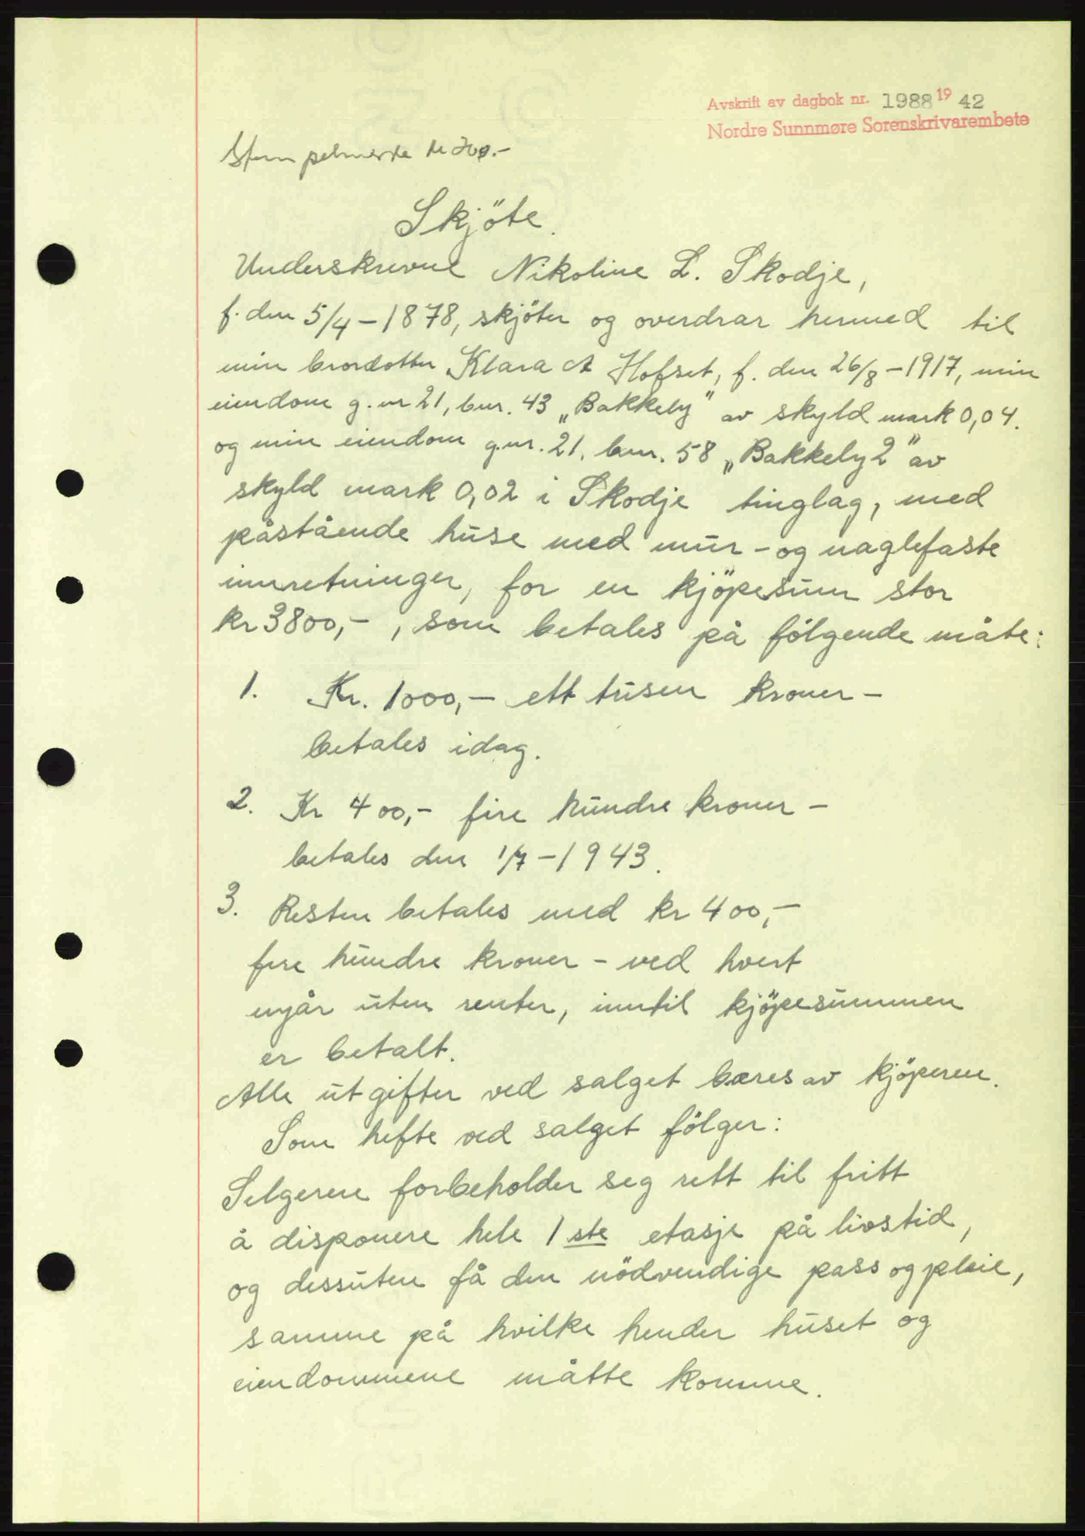 Avskrift av dagbok nr. 1988 19 42
Nordre Sunnmøre Sorenskrivarembete
Stempelmerke
Skjöte.
Underskrevne Nikoline L. Skodje,
f. den 5/4 - 1878, skjöter og overdrar hermed til
min brordotter Klara A Hofset, f. den 26/8 - 1917, min
eiendom g. nr 21, bnr. 43 „Bakkely" av skyld mark 0,04.
og min eiendom g.nr. 21, bnr. 58 „Bakkely 2" av
skyld mark 0,02 i Skodje tinglag, med
påstående huse med mur - og naglefaste
innretninger, for en kjöpesum stor
kr 3800,- , som betales på fölgende måte:
1. Kr. 1000,- ett tusen kroner -
betales idag.
2. Kr 400,- fire hundre kroner -
betales den 1/7 - 1943.
3. Resten betales med kr 400,-
fire hundre kroner - ved hvert
nyår uten renter, inntil kjöpesummen
er betalt.
Alle utgifter ved salget bæres av kjöperen.
Som hefte ved salget fölger:
Selgeren forbeholder seg rett til fritt
å disponere hele 1 ste etasje på livstid,
og dessuten få den nödvendige pass og pleie,
samme på hvilke hender huset og
eiendommene måtte komme.